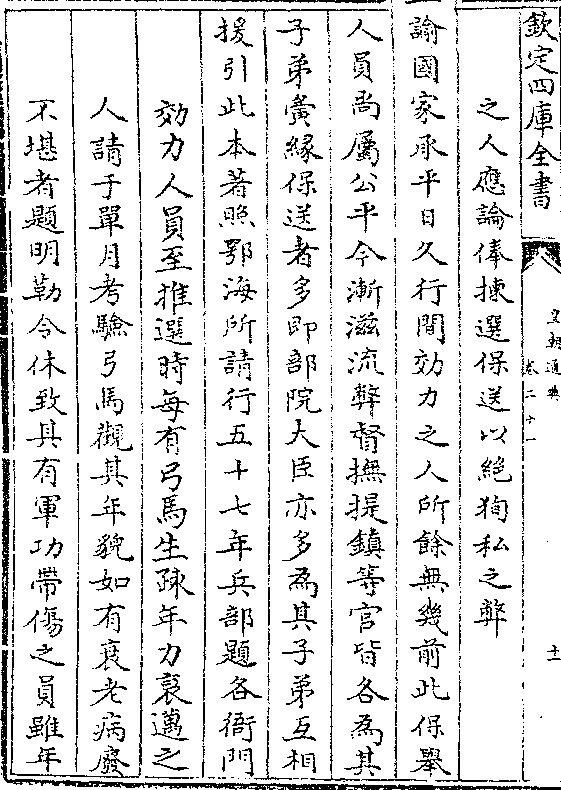 欽定四庫全書
皇朝通典
卷二十一
十一
之人應論俸揀選保送以絕狥私之弊
諭國家承平日久行間効力之人所餘無幾前此保舉
人員尚屬公平今漸滋流弊督撫提鎮等官皆各為其
子弟夤緣保送者多即部院大臣亦多為其子弟互相
援引此本著照鄂海所請行五十七年兵部題各衙門
効力人員至推選時每有弓馬生疎年力衰邁之
人請于單月考驗弓馬觀其年貌如有衰老病廢
不堪者題明勒令休致其有軍功帶傷之員雖年